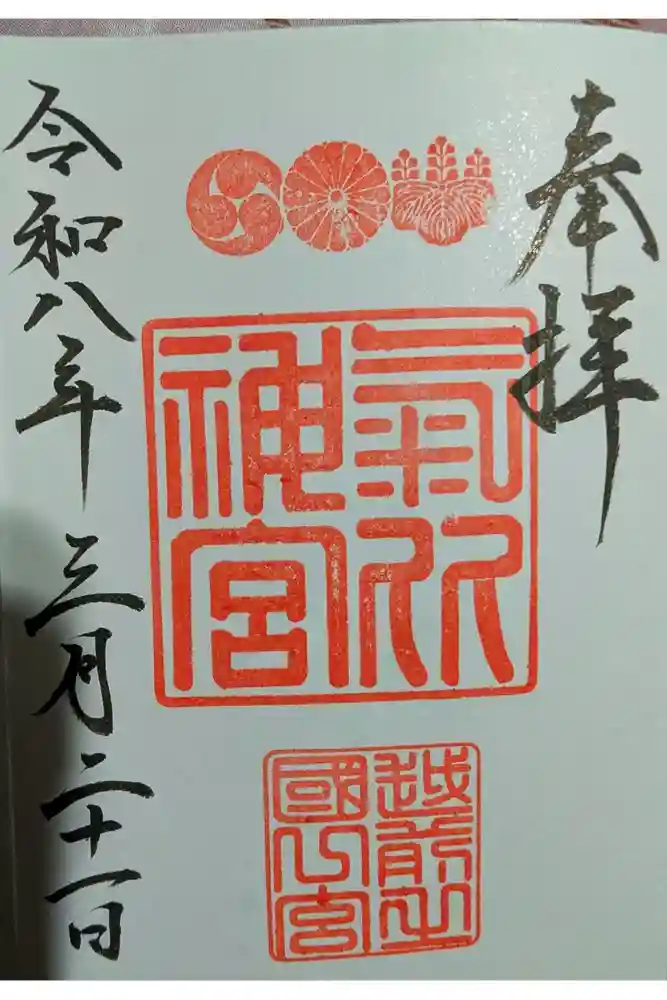 奉拝
氣比
神宮
越前之
國 宮
令和八年 三月二十一日